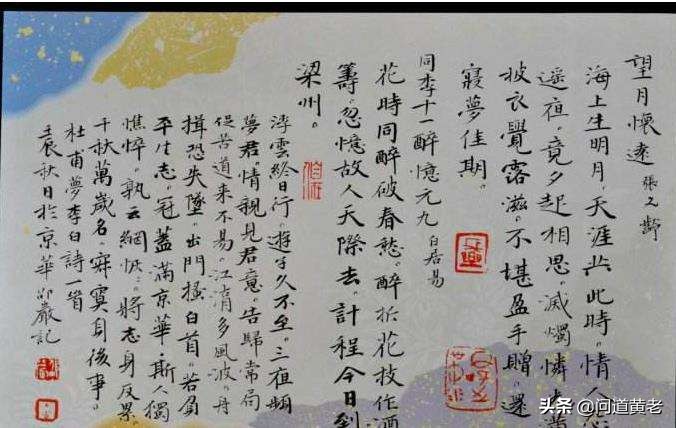 望月懷遠 張九齡
海上生明月。天涯共此時。情人怨
遥夜。竟夕起相思。滅燭憐光滿
披衣覺露滋。不堪盈手贈。還
寢夢佳期。
同李十一醉憶元九 白居易
花時同醉破春愁。醉折花枝作酒
籌。忽憶故人天際去。計程今日到
梁州。
浮雲終日行。遊子久不至。三夜頻
夢君。情親見君意。告歸常局
促苦道来不易。江多風波。舟
楫恐失墜。出門搔白首。若負
平生志。冠蓋滿京華。斯人獨
憔悴。孰云網恢。將身反累。
千秋萬歲名。寂寞身後事。
杜甫夢李白詩一首
壬辰秋日於京華 巖記
头条 @问道黄老